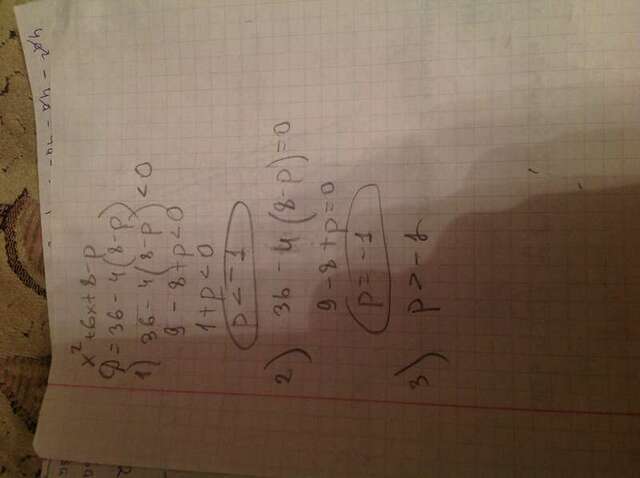 x² + 6x + 8 - p
D = 36 - 4(8 - p)
1) 36 - 4(8 - p) < 0
9 - 8 + p < 0
1 + p < 0
p < -1
2) 36 - 4(8 - p) = 0
9 - 8 + p = 0
p = -1
3) p > -1